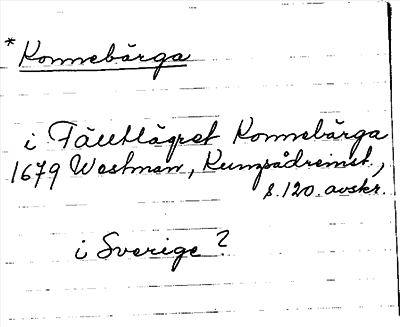 * Konnebärga
i Tälltlägret Konnebärga
1679 Westman, Kungsådreinst.,
s. 120. avskr.
i Sverige?